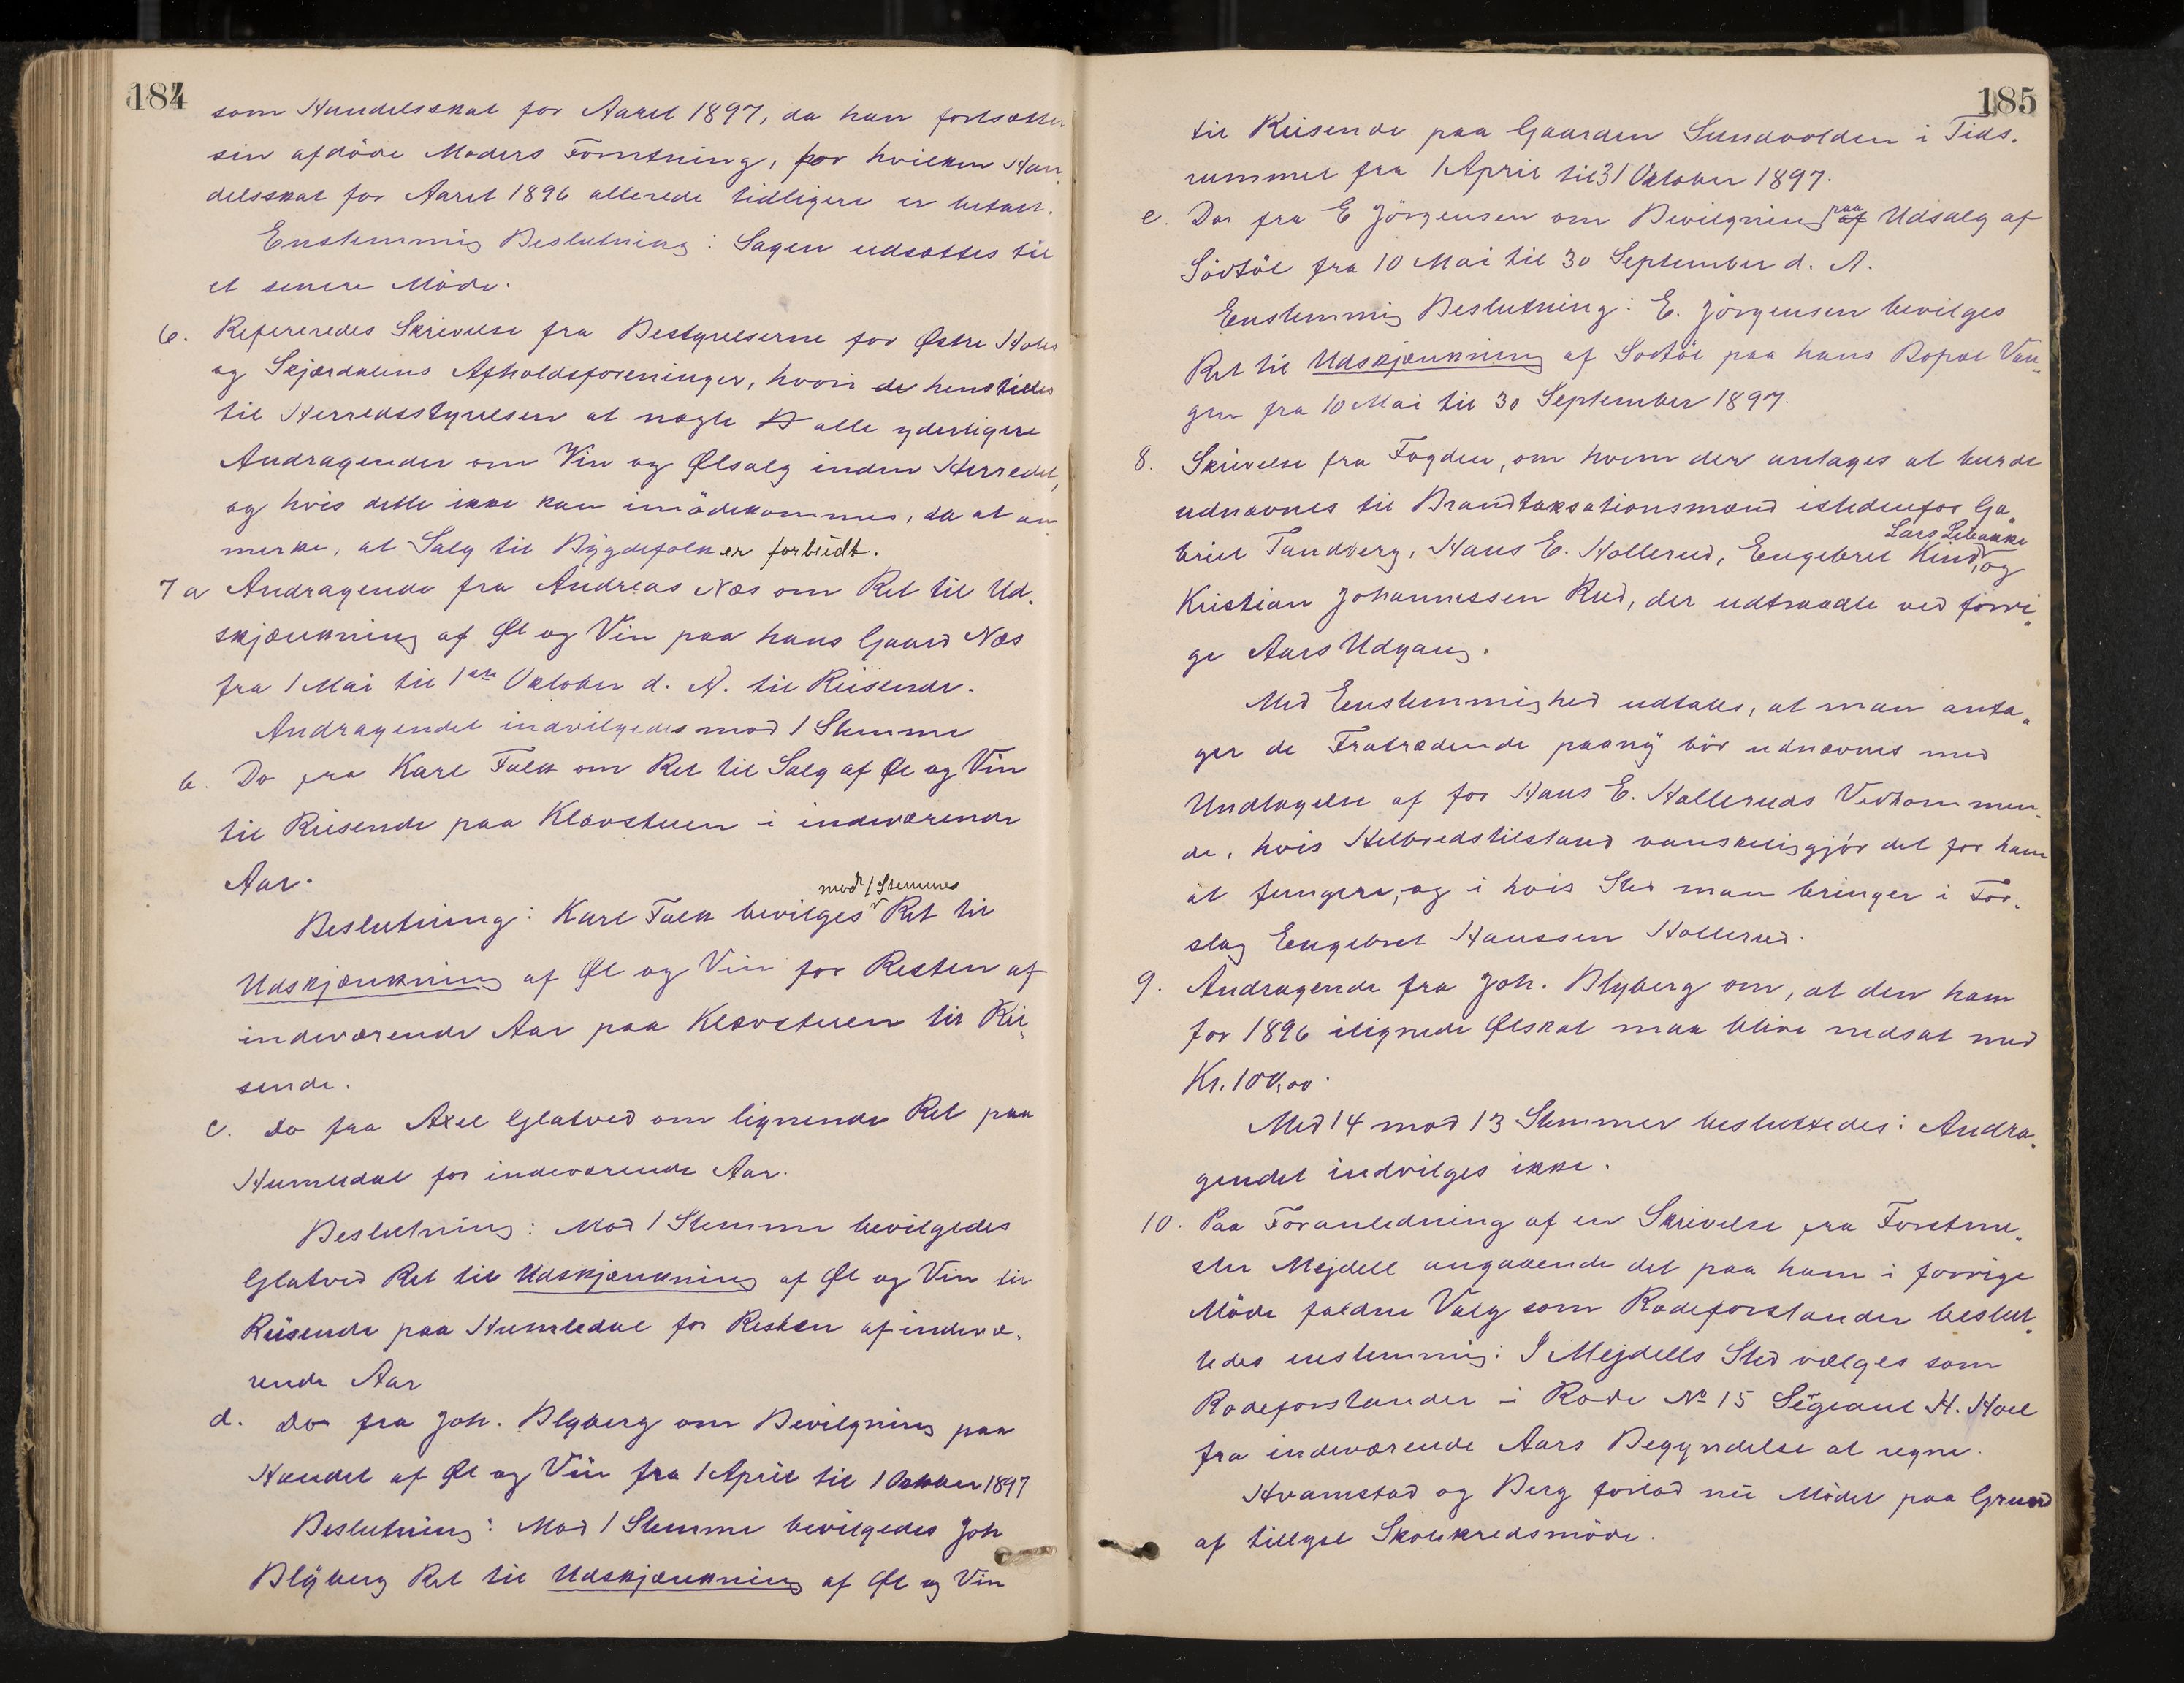 184
som Handelsskat for Aaret 1897, da han fortsætter
sin afdöde Moders Forretning, for hvilken Han„
delsskat for Aaret 1896 allerede tidligere er betalt.
Enstemmig Beslutning: Sagen udsættes til
et senere Möde.
6. Refereredes Skrivelse fra Bestyrelserne for Østre Holes
og Skjærdalens Afholdsforeninger, hvori de henstilles
til Herredsstyrelsen at nægte alle yderligere
Andragender om Vin og Ølsalg inden Herredet,
og hvis dette ikke kan imödekommes, da at an„
merke, at Salg til Bygdefolk er forbudt.
7 a Andragende fra Andreas Næs om Ret til Ud„
skjænkning af Øl og Vin paa hans Gaard Næs
fra 1 Mai til 1ste Oktober d. A. til Reisende.
Andragendet indvilgedes mod 1 Stemme
b. Do fra Karl Falk om Ret til Salg af Øl og Vin
til Reisende paa Klævstuen i indeværende
Aar.
mod 1 Stemmes
Beslutning: Karl Falk bevilges Ret til
Udskjænkning af Øl og Vin for Resten af
indeværende Aar paa Klævstuen til Rei„
sende.
c. Do fra Axel Glatved om lignende Ret paa
Humledal for indeværende Aar.
Beslutning: Mod 1 Stemme bevilgedes
Glatved Ret til Udskjænkning af Øl og Vin til
Reisende paa Humledal for Resten af indevæ„
rende Aar
d. Do fra Joh. Blyberg om Bevilgning paa
Handel af Øl og Vin fra 1 April til 1 Oktober 1897
Beslutning: Mod 1 Stemme bevilgedes Joh
Blyberg Ret til Udskjænkning af Øl og Vin
185
til Reisende paa Gaarden Sundvolden i Tids„
rummet fra 1 April til 31 Oktober 1897.
e. Do fra E Jörgensen om Bevilgning paa af Udsalg af
Södtöl fra 10 Mai til 30 September d. A.
Enstemmig Beslutning: E. Jörgensen bevilges
Ret til Udskjænkning af Södtöl paa hans Bopæl Van„
gen fra 10 Mai til 30 September 1897.
8. Skrivelse fra Fogden, om hvem der antages at burde
udnævnes til Brandtaksationsmænd istedenfor Ga„
Lars Lebakke
briel Tandberg, Hans E. Hollerud, Engebret Kind, og
Kristian Johannessen Rud, der udtraadte ved forri„
ge Aars Udgang.
Med Enstemmighed udtales, at man anta„
ger de Fratrædende paany bör udnævnes med
Undtagelse af for Hans E. Holleruds Vedkommen„
de, hvis Helbredstilstand vanskeliggjör det for ham
at fungere, og i hvis Sted man bringer i For„
slag Engebret Hanssen Hollerud.
9. Andragende fra Joh. Blyberg om, at den ham
for 1896 ilignede Ølskat maa blive nedsat med
Kr. 100,00.
Med 14 mod 13 Stemmer besluttedes: Andra„
gendet indvilges ikke.
10. Paa Foranledning af en Skrivelse fra Forstme„
ster Mejdell angaaende det paa ham i forrige
Möde faldne Valg som Rodeforstander beslut„
tedes enstemmig: I Mejdells Sted vælges som
Rodeforstander i Rode No 15 Sergeant H. Hoel
fra indeværende Aars Begyndelse at regne.
Hvamstad og Berg forlod nu Mödet paa Grund
af tillyst Skolekredsmöde.